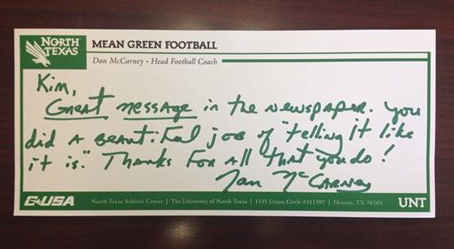 NORTH TEXAS
MEAN GREEN FOOTBALL
Dan McCarney • Head Football Coach
Kim,
Great message in the newspaper. You
did a beautiful job of "telling it like
it is." Thanks for all that you do!
Dan McCarney
C-USA
North Texas Athletic Center | The University of North Texas | 1155 Union Circle #311397 | Denton, TX 76203
UNT